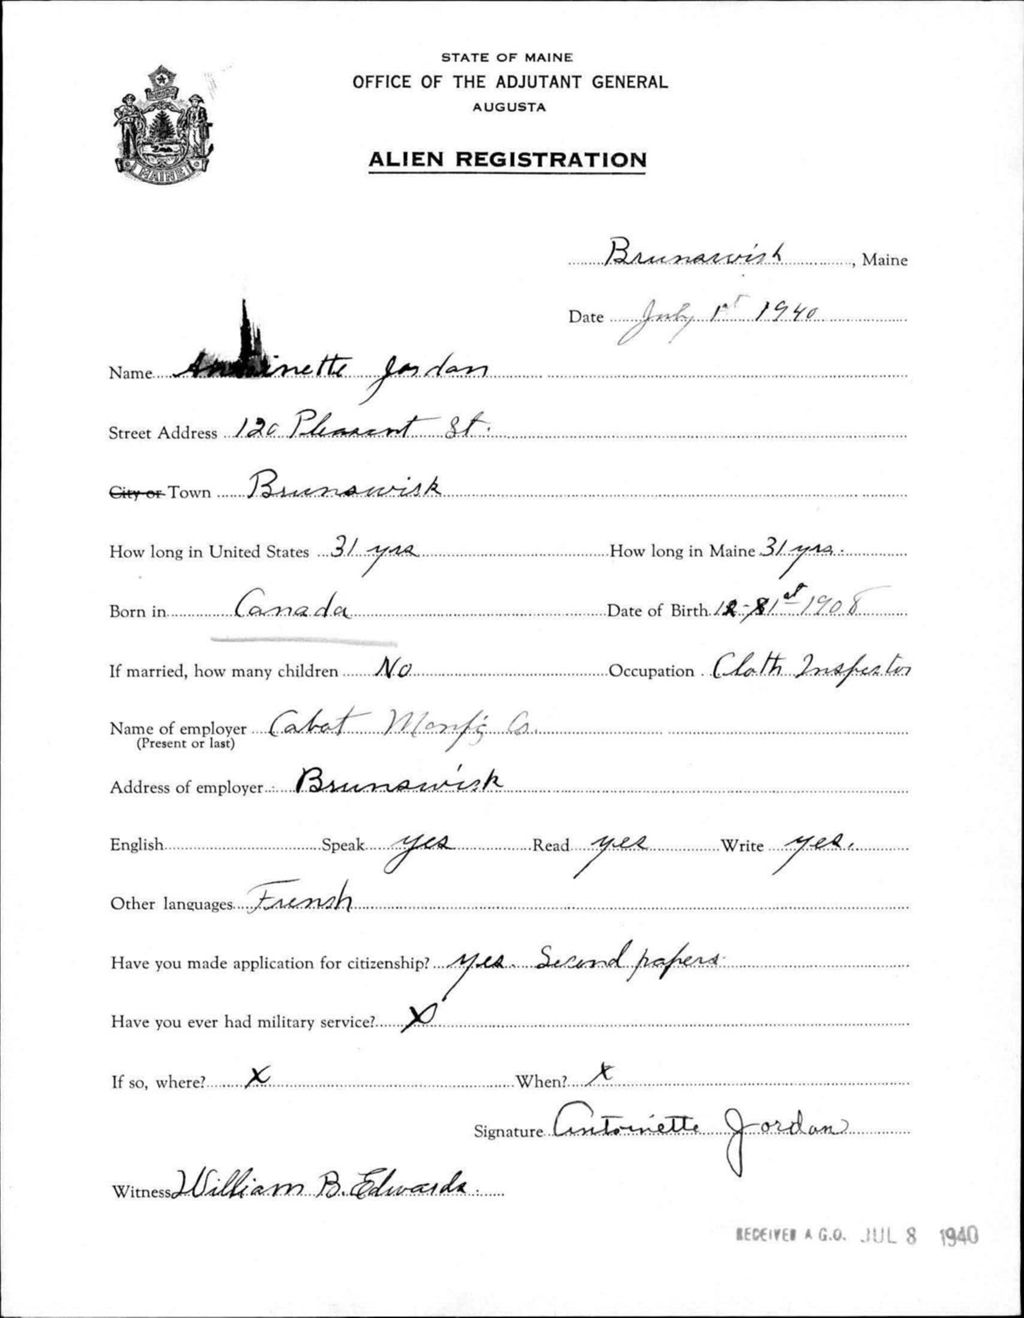 STATE OF MAINE
OFFICE OF THE ADJUTANT GENERAL
AUGUSTA
ALIEN REGISTRATION
MAINE
Brunswick, Maine
Date July 1st 1940
Name Antoinette Jordan
Street Address 120 Pleasant St.
City or Town Brunswick
How long in United States 31 yrs How long in Maine 31 yrs.
Born in Canada Date of Birth 12-31st-1908
If married, how many children No Occupation Cloth Inspector
Name of employer Cabot Manf'g Co.
(Present or last)
Address of employer Brunswick
English Speak yes Read yes Write yes.
Other languages French
Have you made application for citizenship? yes. Second papers
Have you ever had military service? X
If so, where? X When? X
Signature Antoinette Jordan
Witness William B. Edwards.
RECEIVED A.G.O. JUL 8 1940